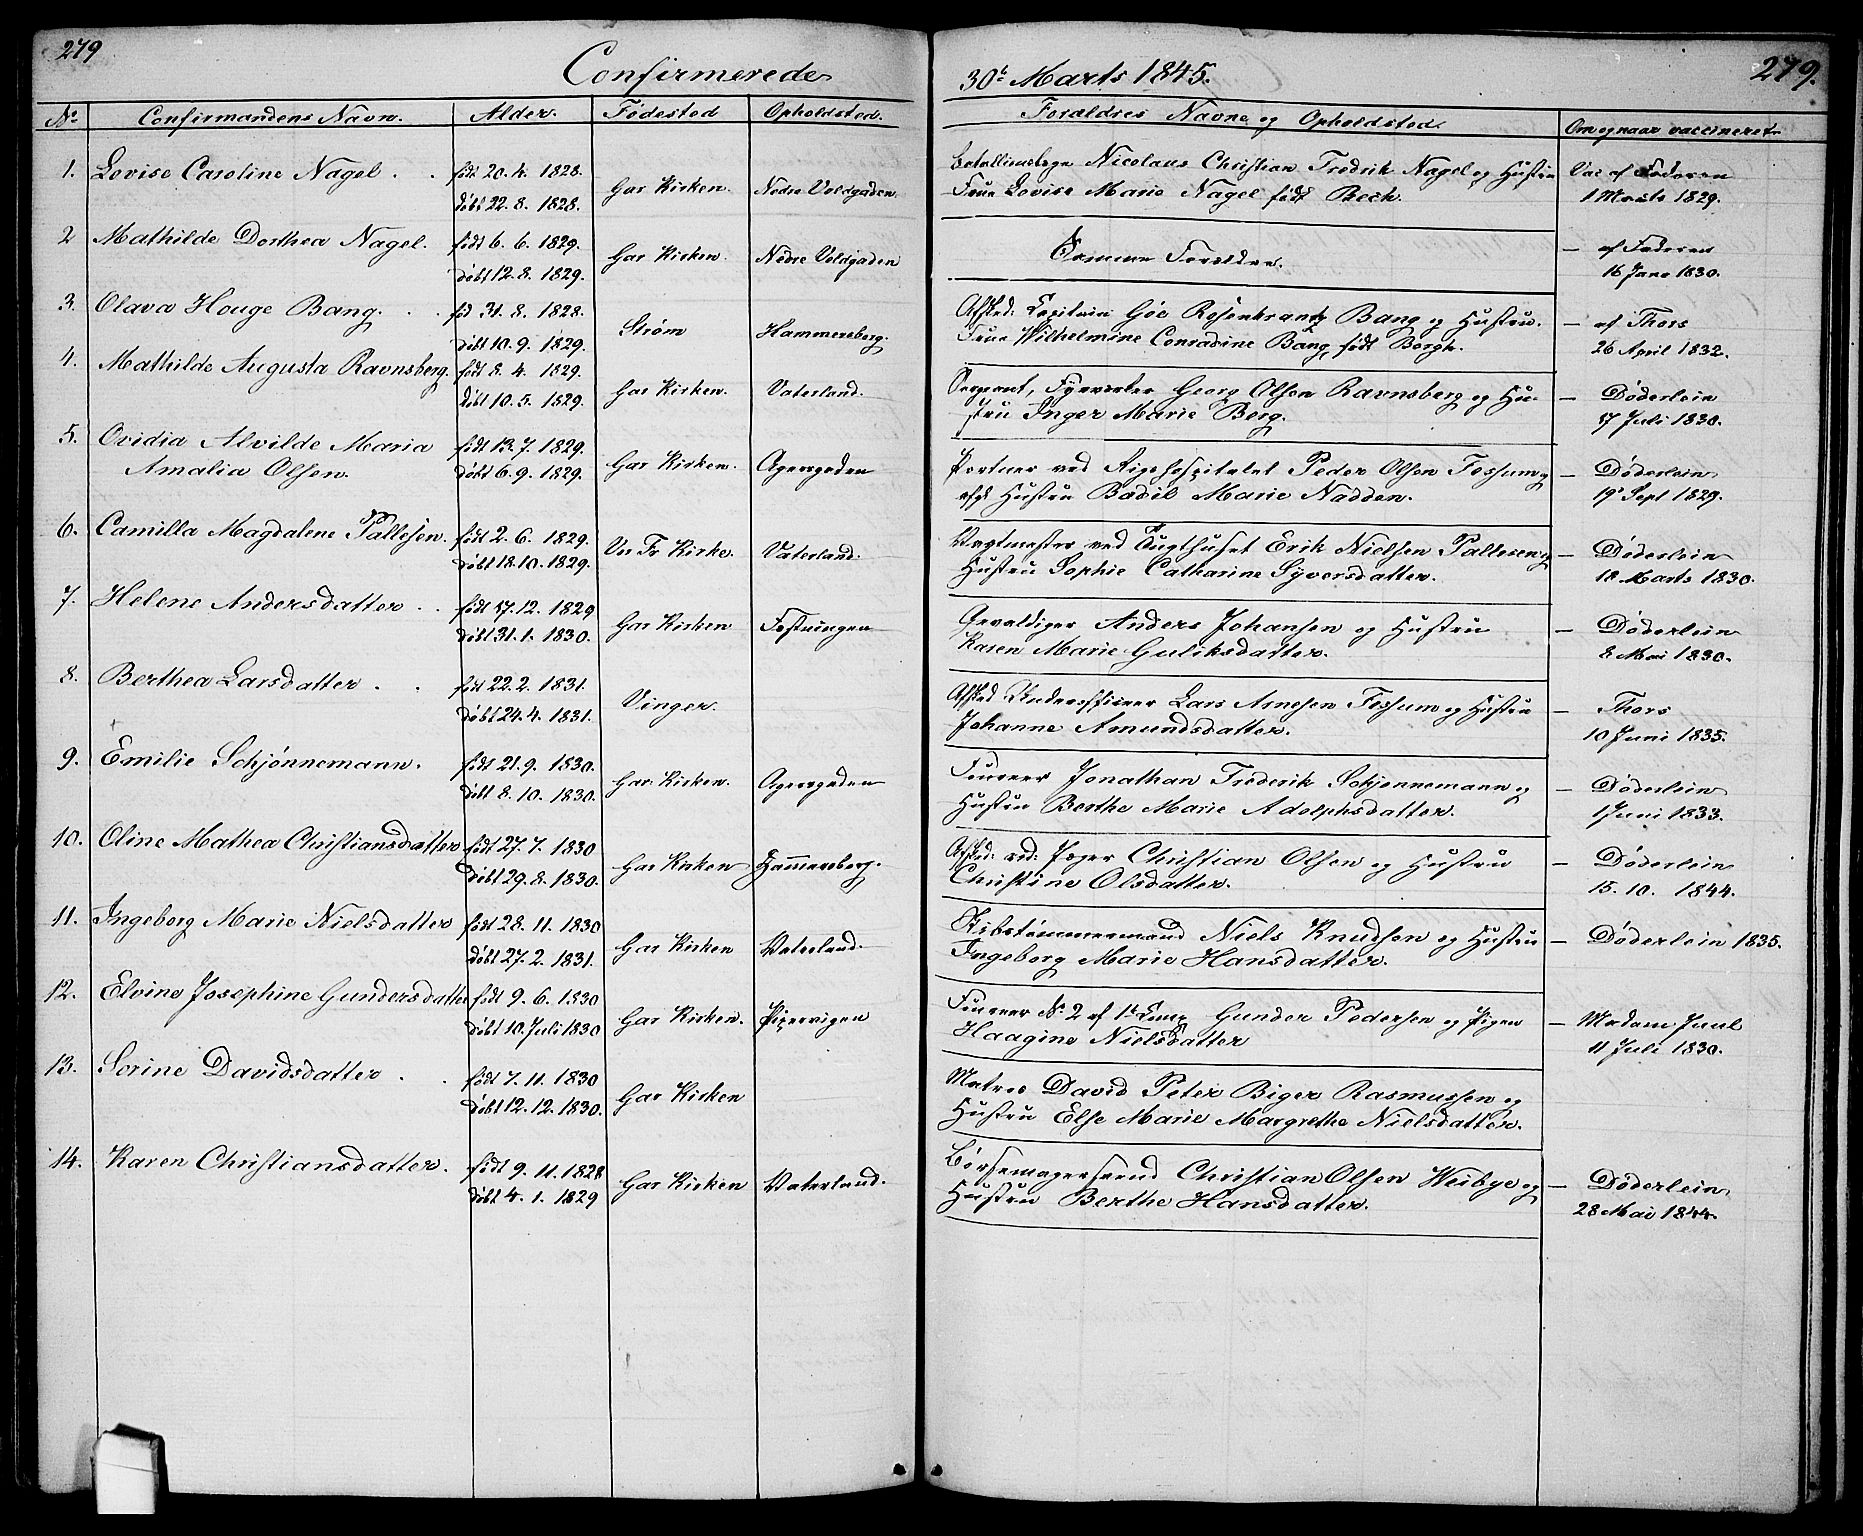 279
Confirmerede
30t Marts 1845.
279.
No Confirmandens Navn. Alder. Fødested Opholdsted. Forældres Navne og Opholdsted Om og naar vaccineret
1. Lovise Caroline Nagel . . født 20. 4. 1828. Gar Kirken. Nedre Voldgaden Nicolaus Christian Fredrik Nagel og Hustru Vac af Faderen
døbt 22. 8. 1828. Frue Lovise Marie Nagel født Bech. 1 Marts 1829.
2 Mathilde Dorthea Nagel. født 6. 6. 1829. Gar Kirken. Nedre Voldgaden Samme Forældre. — af Faderen
døbt 12. 8. 1829. 16 Janr 1830.
3. Olava Houge Bang. . . fød 31. 8. 1828. Strøm Hammersborg. Afsked: Capitain Göe Rosenkrantz Bang og Hustru. — af Thors
døbt 10. 9. 1829. Frue Wilhelmine Conradine Bang født Borgh. 26 April 1832.
4. Mathilde Augusta Ravnsberg. født 8. 4. 1829. Gar Kirken. Vaterland. Sergeant, Fyrverker Georg Olsen Ravnsberg og Hu- — Døderlein
døbt 10. 5. 1829. stru Inger Marie Berg. 17 Juli 1830.
5. Ovidia Alvilde Maria født 13. 7. 1829. Gar Kirken. Agersgaden Portner ved Rigshospitalet Peder Olsen Fossum og — Døderlein
Amalia Olsen. døbt 6. 9. 1829. Hustru Bodil Marie Nadden. 19 Sept 1829.
6. Camilla Magdalene Pallesen. født 2. 6. 1829. Vor Fr Kirke. Vaterland. Vagtmester ved Tugthuset Erik Nielsen Pallesen og — Døderlein
døbt 18. 10. 1829. Hustru Sophie Catharine Syversdatter. 18 Marts 1830.
7. Helene Andersdatter . . født 17. 12. 1829 Gar Kirken Festningen Gevaldiger Anders Johansen og Hustru — Døderlein
døbt 31. 1. 1830. Karen Marie Guliksdatter. 8 Mai 1830.
8. Berthea Larsdatter . . født 22. 2. 1831. Vinger. Afsked Underofficeer Lars Arnesen Fossum og Hustru — Thors
døbt 24. 4. 1831. Johanne Amundsdatter. 10 Juni 1835.
9. Emilie Schjønnemann. født 21. 9. 1830. Gar. Kirken. Agersgaden Foureer Jonathan Frederik Schjønnemann og — Døderlein
døbt 8. 10. 1830. Hustru Berthe Marie Adolphsdatter. 1 Juni 1833.
10. Oline Mathea Christiansdatter født 27. 7. 1830 Gar Kirken Hammersborg. Afsked: rid: Jæger Christian Olsen og Hustru — Døderlein
døbt 29. 8. 1830. Christine Olsdatter. 15. 10. 1844.
11. Ingeborg Marie Nielsdatter født 28. 11. 1830 Gar Kirken Vaterland. Skibstømmermand Niels Knudsen og Hustru — Døderlein 1835.
døbt 27. 2. 1831. Ingeborg Marie Hansdatter.
12. Elvine Josephine Gundersdatter født 9. 6. 1830 Gar Kirken. Pipervigen Foureer No 2 af 1st Comp Gunder Pedersen og Pigen — Madam Juul
døbt 10. Juli 1830 Haagine Nielsdatter 11 Juli 1830.
13. Sorine Davidsdatter . . født 7. 11. 1830 Gar Kirken Matros David Peter Biger Rasmussen og
døbt 12. 12. 1830. Hustru Else Marie Margrethe Nielsdatter.
14. Karen Christiansdatter. født 9. 11. 1828 Gar Kirken Vaterland. Børsemagersvend Christian Olsen Weibye og — Døderlein
døbt 4. 1. 1829 Hustru Berthe Hansdatter. 28 Mai 1844.